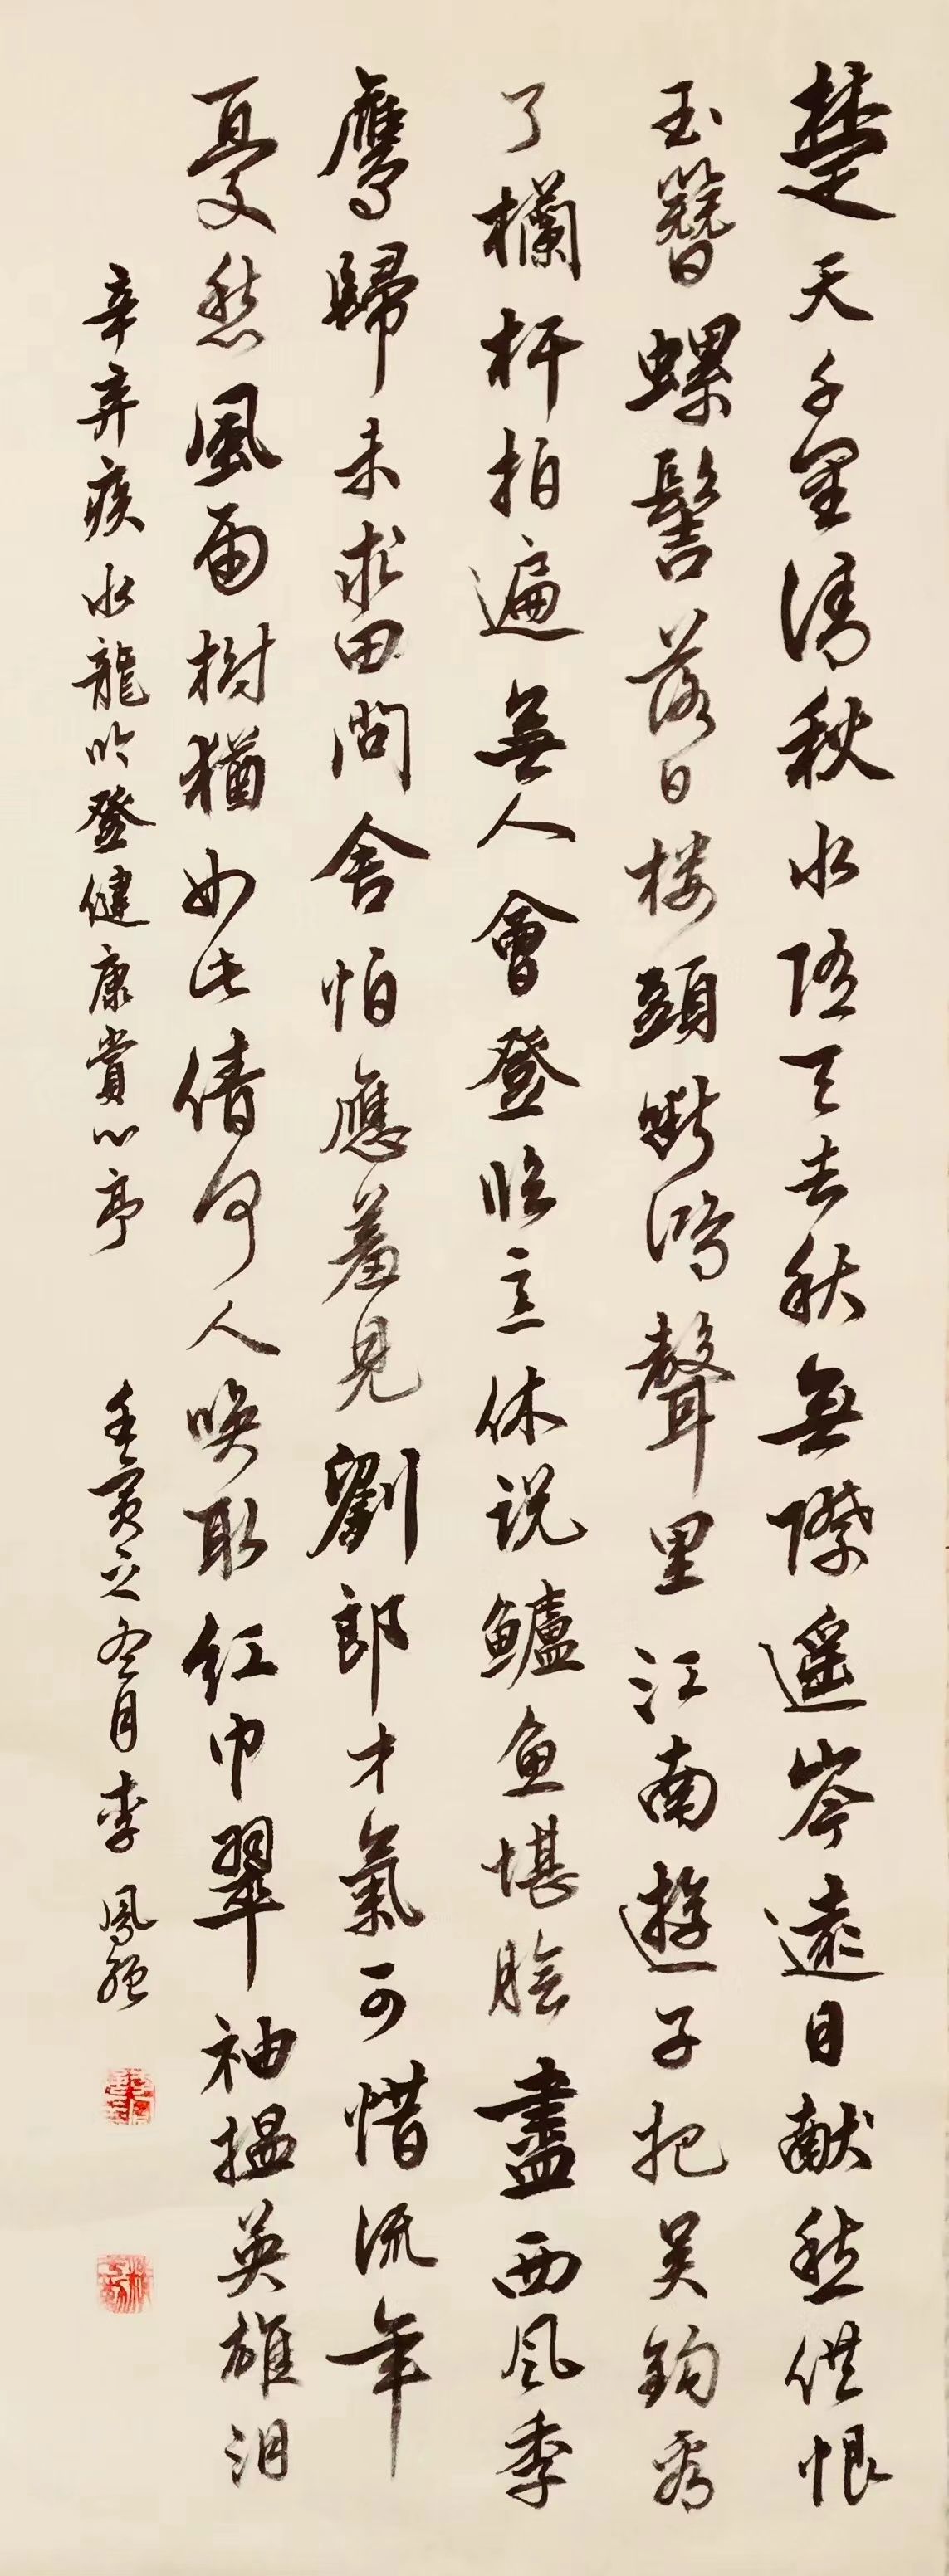 楚天千里清秋水随天去秋無際遥岑遠目献愁供恨
玉簪螺髻落日楼頭斷鴻聲里江南遊子把吴钩看
了欄杆拍遍無人會登临意休说鱸魚堪脍盡西风季
鹰歸未求田問舍怕應羞見劉郎才氣可惜流年
憂愁風雨樹猶如此倩何人唤取红巾翠袖揾英雄泪
辛弃疾水龍吟登健康賞心亭 壬寅之冬月李鳳強